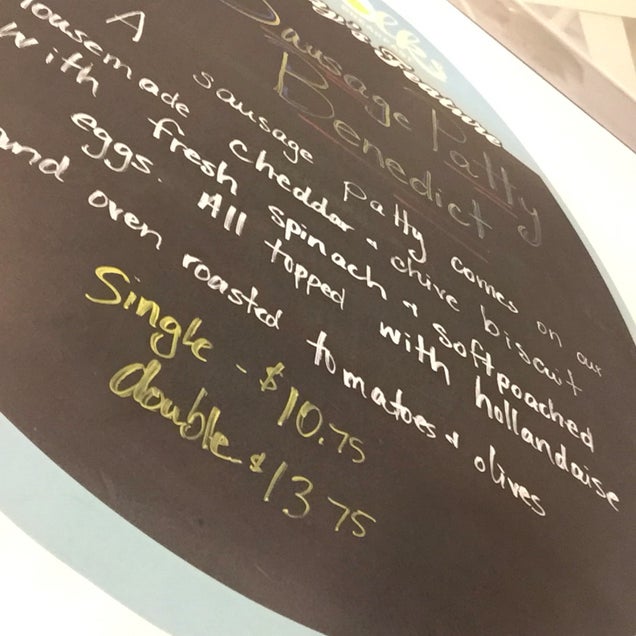 Feature
Sausage Patty
Benedict
A sausage patty comes on our
housemade cheddar + chive biscuit
with fresh spinach + softpoached
eggs. All topped with hollandaise
and oven roasted tomatoes + olives
Single - $10.75
double $13.75